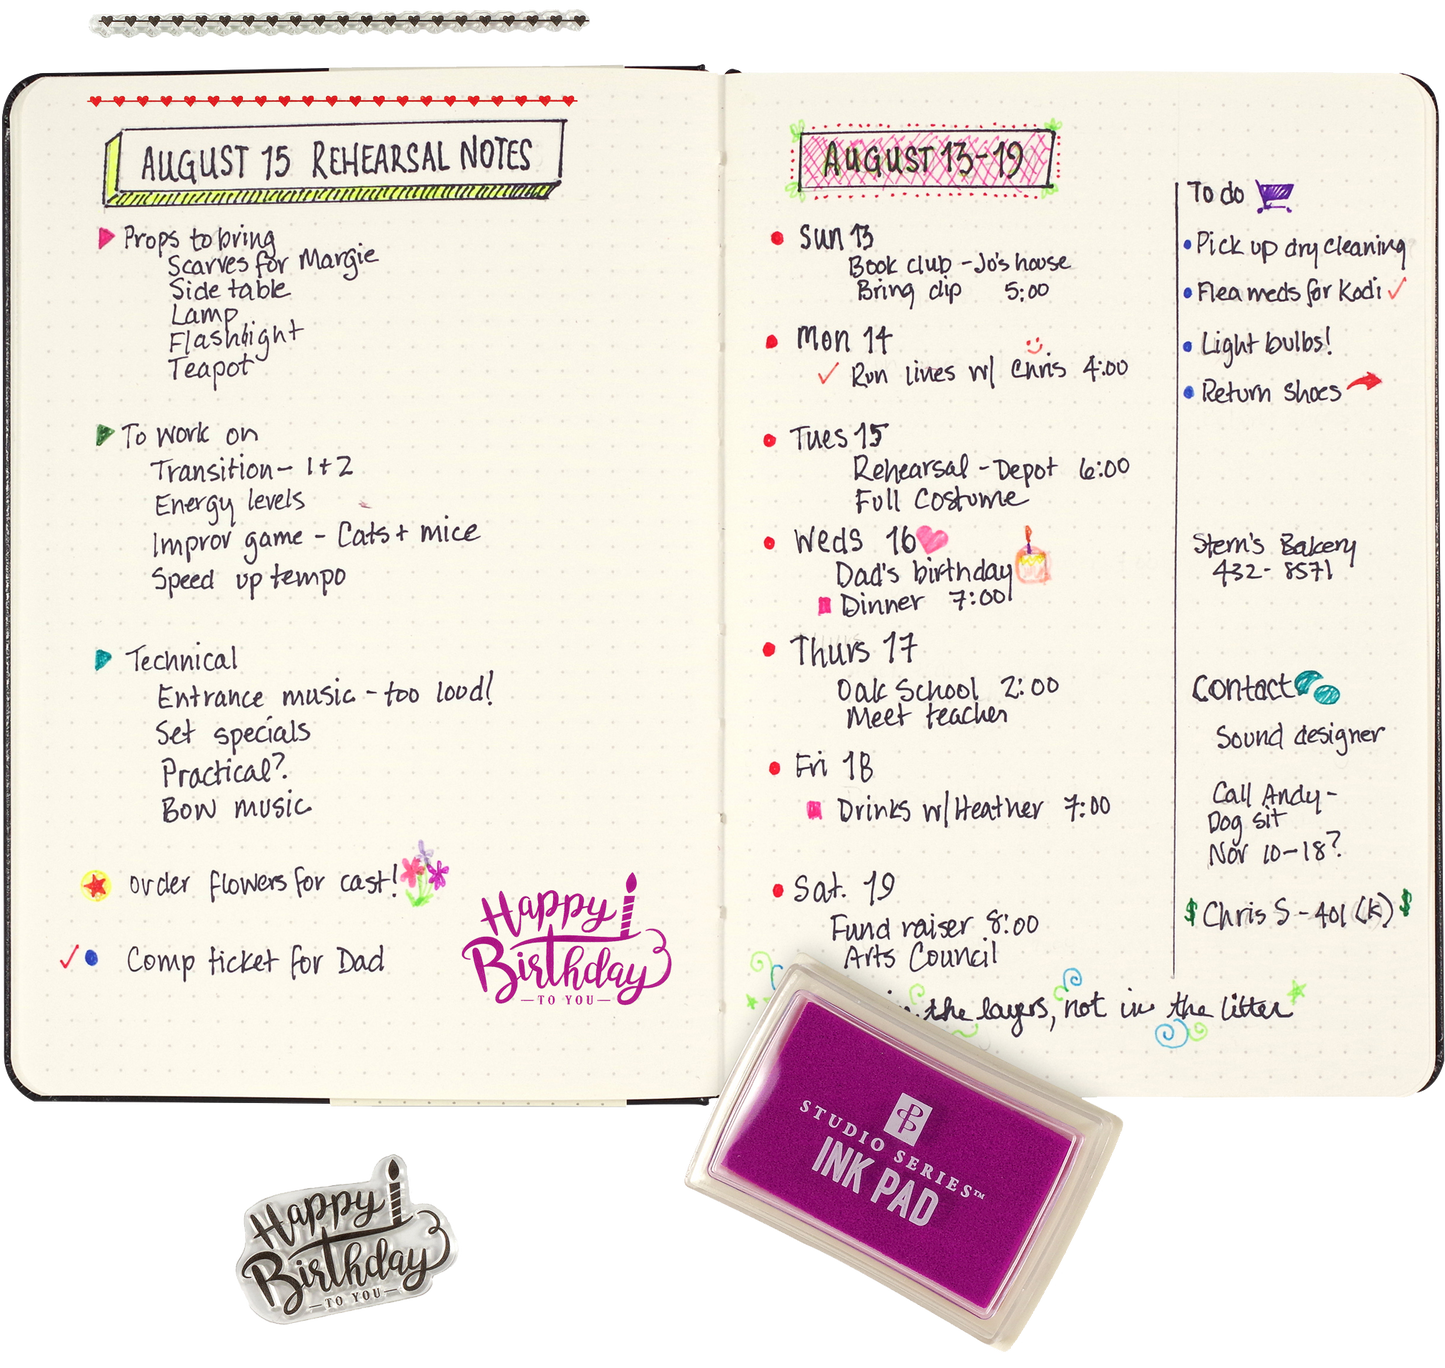 AUGUST 15 REHEARSAL NOTES
Props to bring
Scarves for Margie
Side table
Lamp
Flashlight
Teapot
To work on
Transition - 1+2
Energy levels
Improv game - Cats + mice
Speed up tempo
Technical
Entrance music - too loud!
Set specials
Practical?
Bow music
order flowers for cast!
Comp ticket for Dad
Happy
Birthday
TO YOU
AUGUST 13-19
Sun 13
Book club - Jo's house
Bring dip 5:00
Mon 14
Run lines w/ Chris 4:00
Tues 15
Rehearsal - Depot 6:00
Full Costume
Weds 16
Dad's birthday
Dinner 7:00
Thurs 17
Oak School 2:00
Meet teacher
Fri 18
Drinks w/ Heather 7:00
Sat. 19
Fund raiser 8:00
Arts Council
the layers, not in the litter
To do
Pick up dry cleaning
Flea meds for Kodi
Light bulbs!
Return Shoes
Stern's Bakery
432-8571
Contact
Sound designer
Call Andy -
Dog sit
Nov 10-18?
$ Chris S - 401 (k) $
STUDIO SERIES™
INK PAD
Happy
Birthday
TO YOU